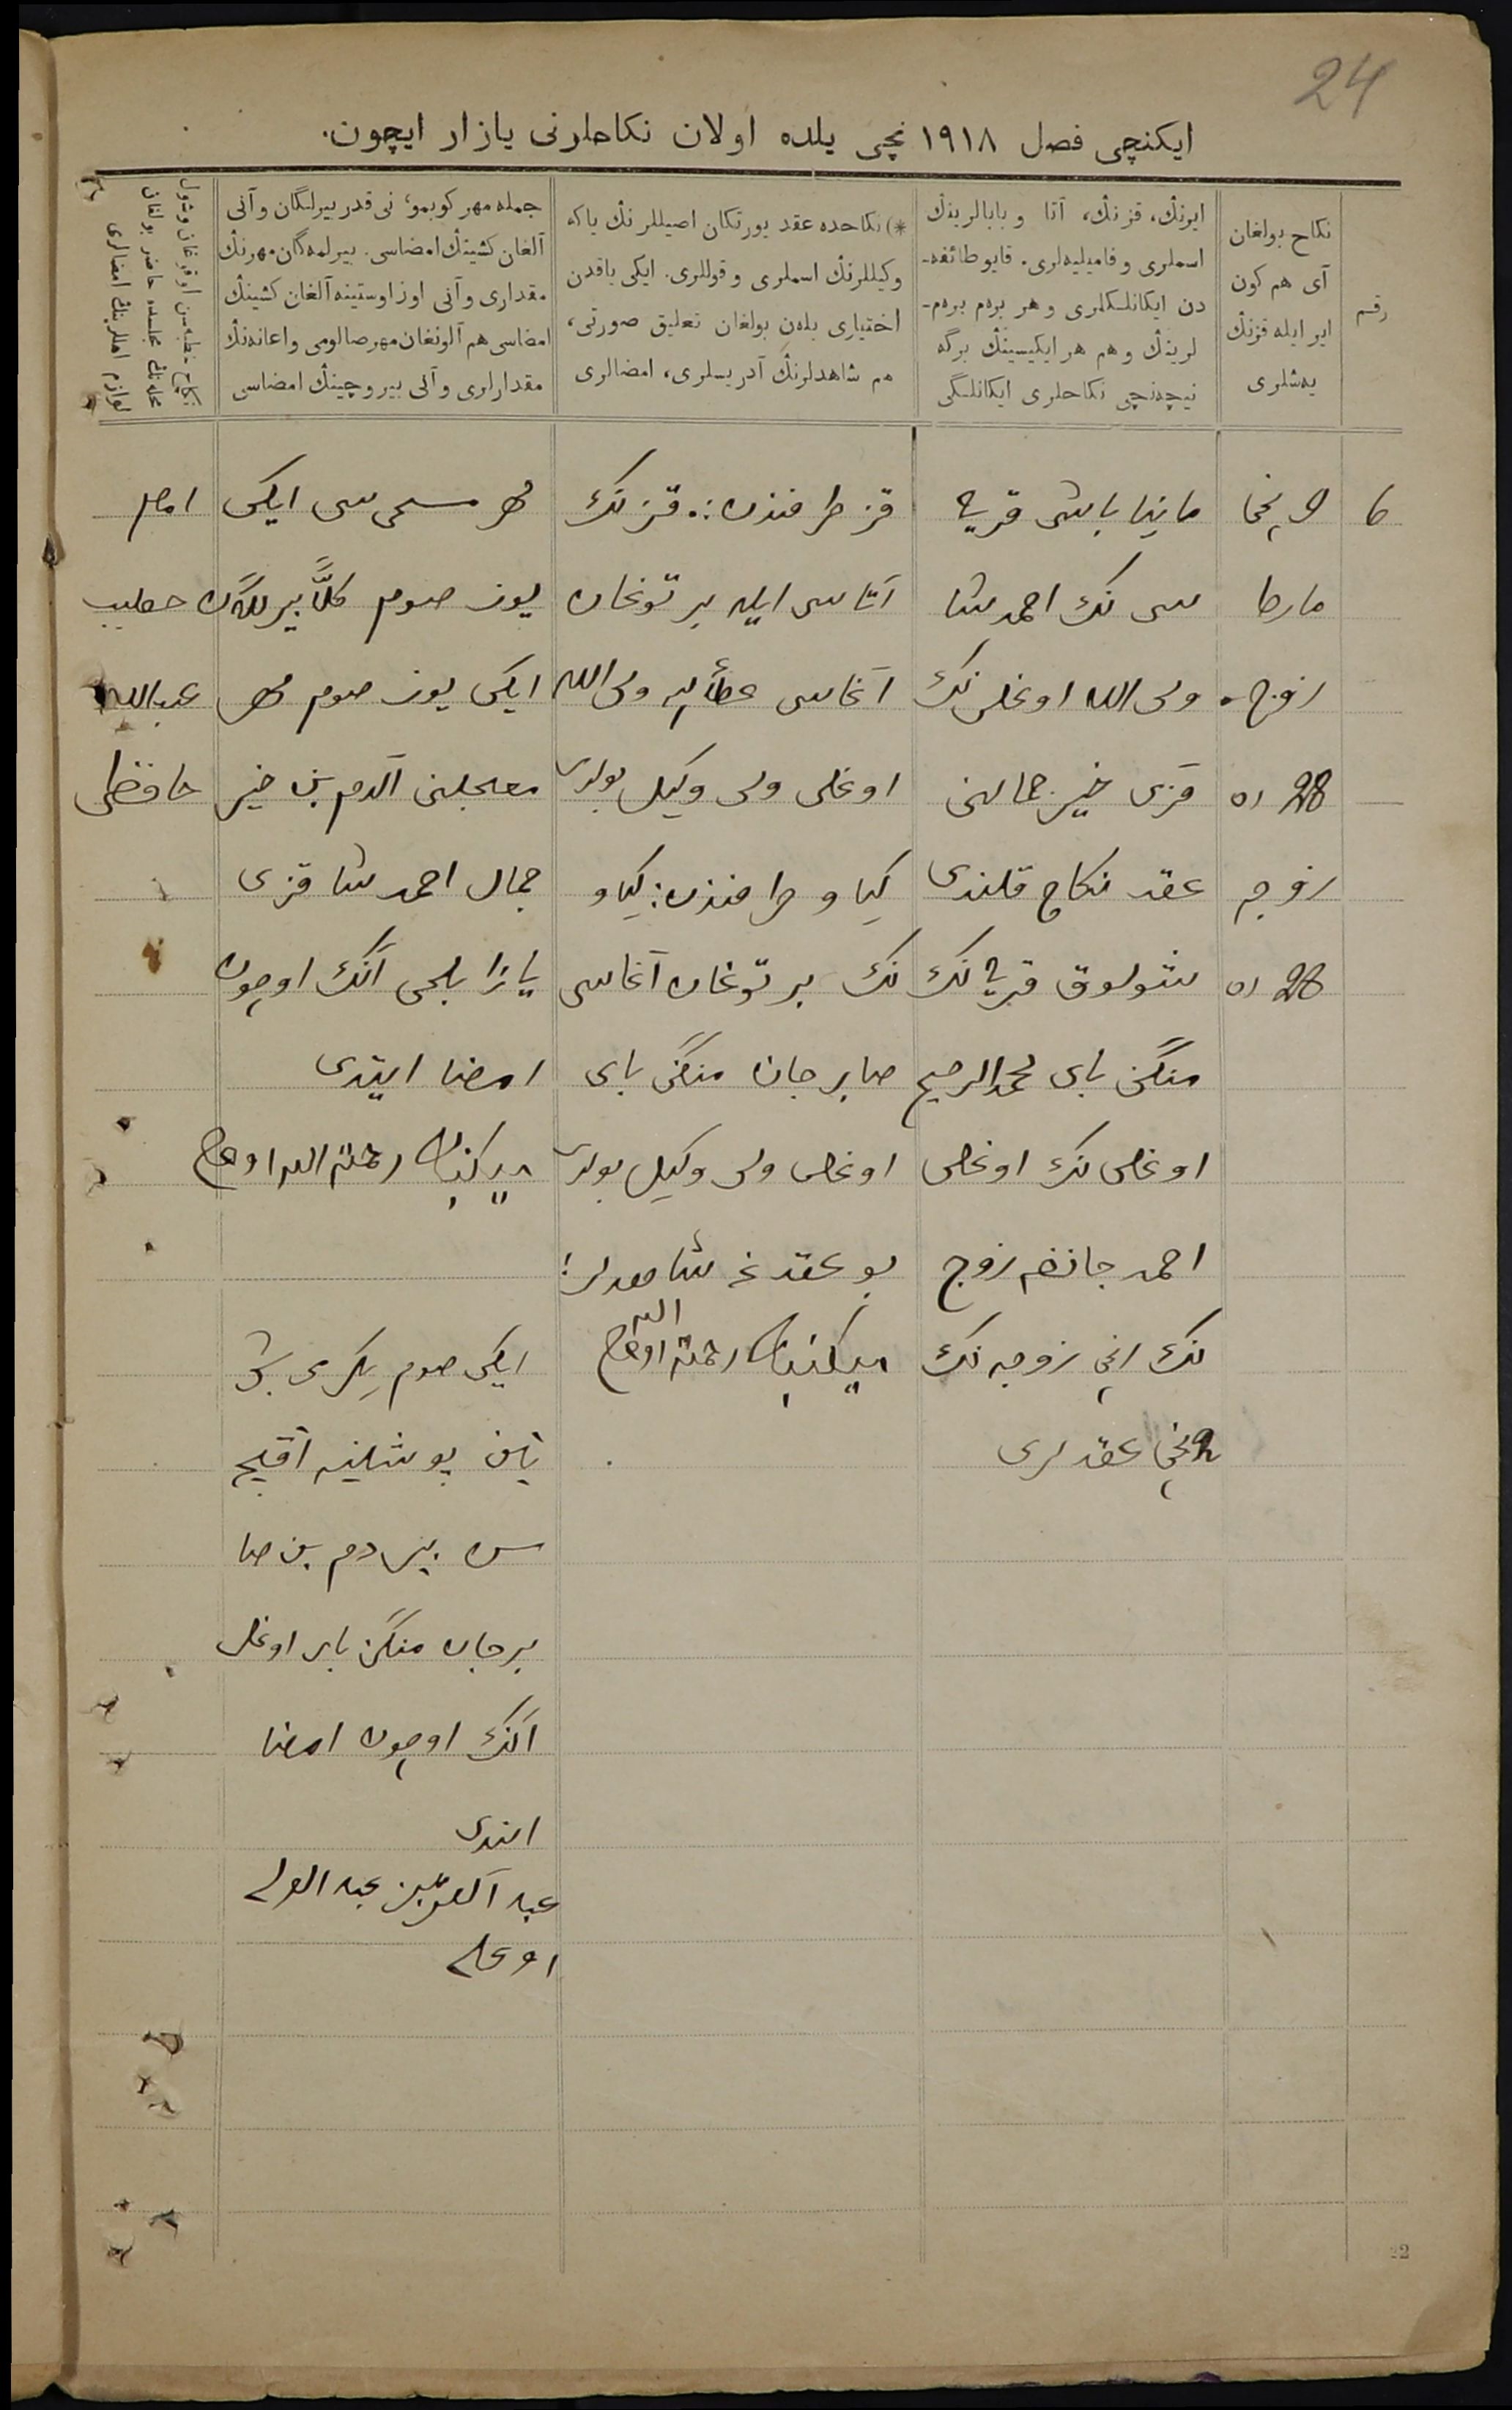 24
ایكنچی فصل ١٩١٨ نچی یلده اولان نكاحلرنی یازار ایچون.
رقم
نكاح بولغان
آی هم كون
ایر ایله قزنڭ
یەشلری
ایرنڭ، قزنڭ، آتا و بابالرینڭ
اسملری و فامیلیەلری. قایو طائفه-
دن ایكانلكلری و هر برەم برەم-
لرینڭ و هم هر ایكیسینڭ برگه
نیچەنچی نكاحلری ایكانلگی
*) نكاحده عقد یورتكان اصیللرنڭ یاكه
وكیللرنڭ اسملری و قوللری. ایكی یاقدن
اختیاری بلەن بولغان تعلیق صورتی،
هم شاهدلرنڭ آدریسلری، امضالری
جمله مهر كوبمو، نی قدر بیرلگان و آنی
آلغان كشینڭ امضاسی. بیرلمەگان مهرنڭ
مقداری و آنی اوز اوستینه آلغان كشینڭ
امضاسی هم آلونغان مهر صالومی و اعانەنڭ
مقدارلری و آنی بیروچینڭ امضاسی
نكاح خطبەسن اوقوغان و شول
محلەنڭ مجلسده حاضر بولغان
لوازم اهللرینڭ امضالری
٦
مارط
زوج.
28 ده
زوجه
28 ده
باشی قریه
سی نڭ احمد شا
ولی الله اوغلی نڭ
قزی خیر جمالنی
عقد نكاح قلندی
شولوق قریه نڭ
منگنی بای محمدالرحیم
اوغلی نڭ اوغلی
احمد جانغه زوج
نڭ زوجه نڭ
2 نچی عقدلری
قز طرفندن: قزنڭ
آتاسی ایله بر توغان
آغاسی ولی الله
اوغلی ولی وكیل بولدی
كیاو طرفندن: كیاو
نڭ بر توغان آغاسی
صابر جان منگنی بای
اوغلی ولی وكیل بولدی
بو عقدغه شاهدلر:
رحمة الله اوغلی
مهر مسمی سی ایكی
یوز صوم كلاً بیرلگان
ایكی یوز صوم مهر
معجلنی آلدم بن خیر
جمال احمد شا قزی
یازا بلمی آنڭ اوچون
امضا ایتدی
رحمة الله اوغلی
ایكی صوم یكرمی بش
تین پوشلینه آقچه
سن بیردم بن صا
بر جان منگنی بای اوغلی
آنڭ اوچون امضا
ایتدی
عبد الولی
اوغلی
امام
خطیب
عبدالله
حافظی
22